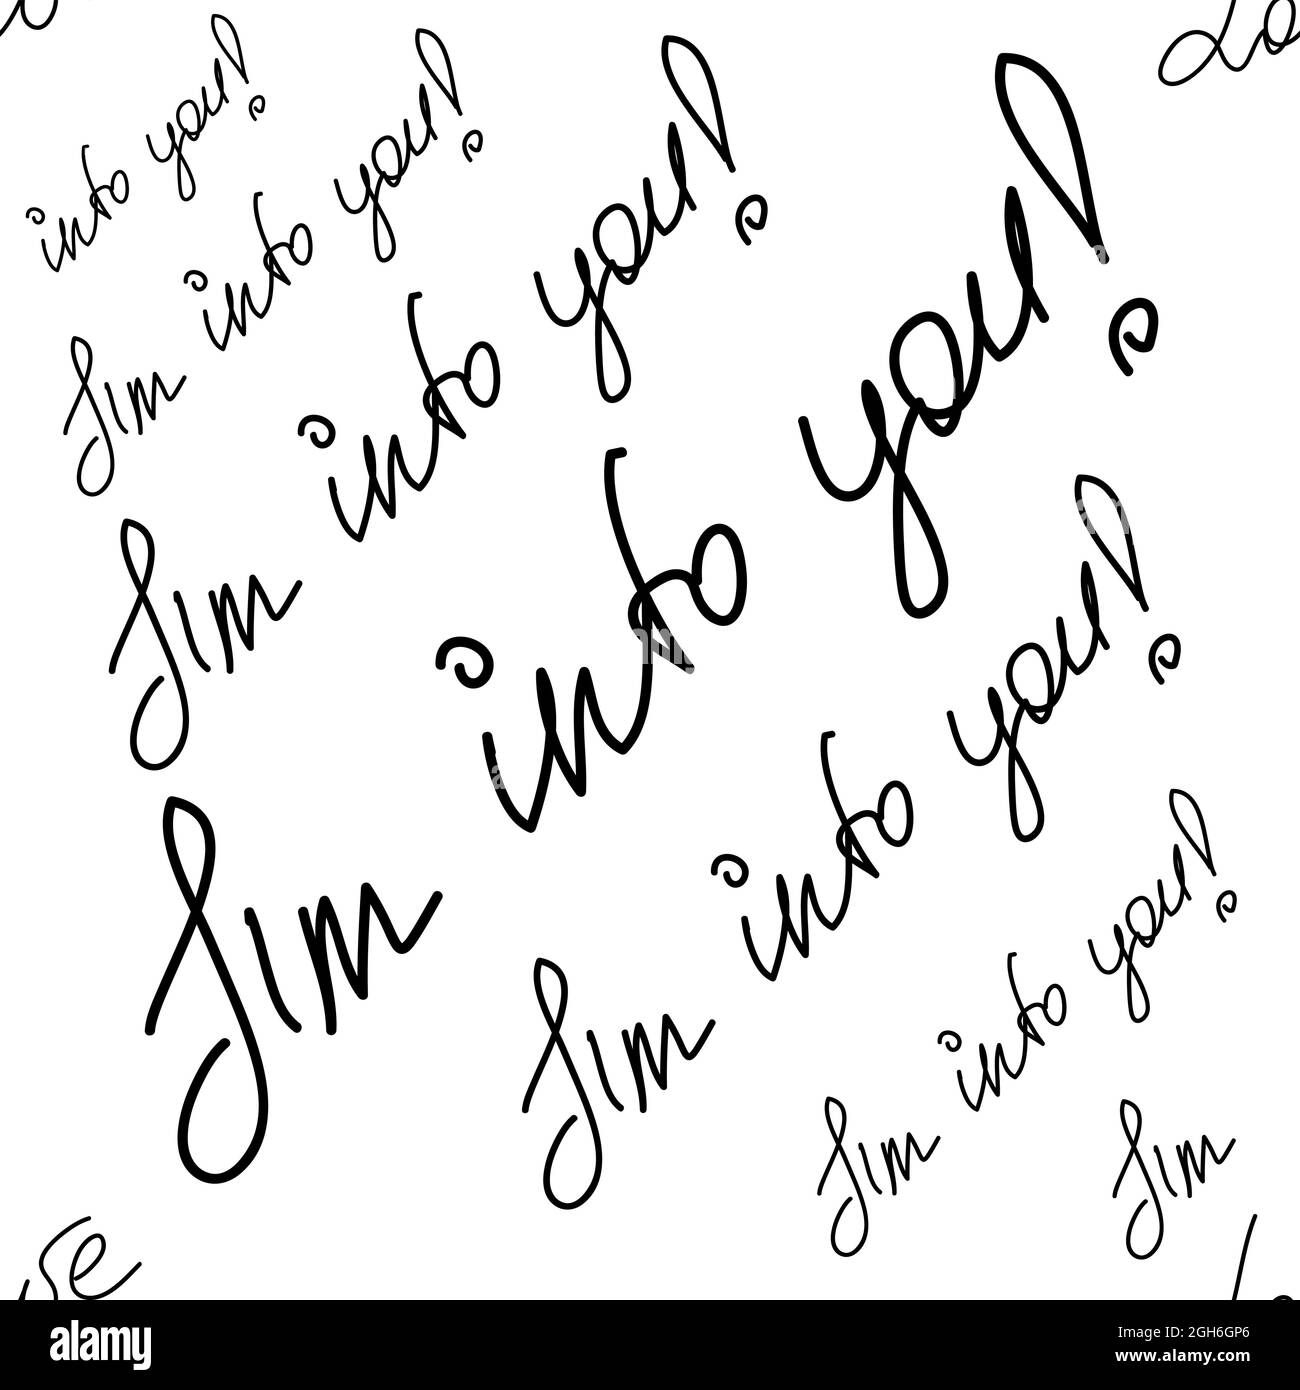 into you!
Jim into you!
Jim into you!
Jim into you!
Jim into you!
Jim into you!
Jim
Lo
ve
alamy
Image ID: 2GH6GP6
www.alamy.com